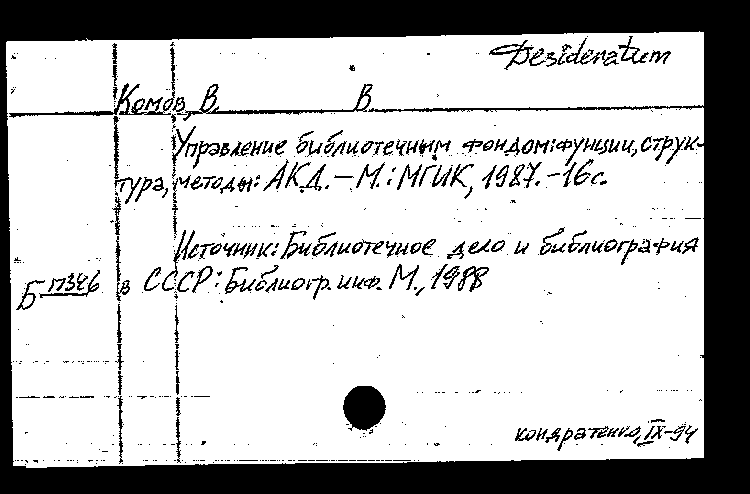 Desideratum
Комов, В. В.
Управление библиотечным фондом: фунции, струк-
тура, методы: АКД. – М.: МГИК, 1987. – 16 с.
Источник: Библиотечное дело и библиография
Б п346 в СССР: Библиогр. инф. М., 1988
кондратенко, IX-94